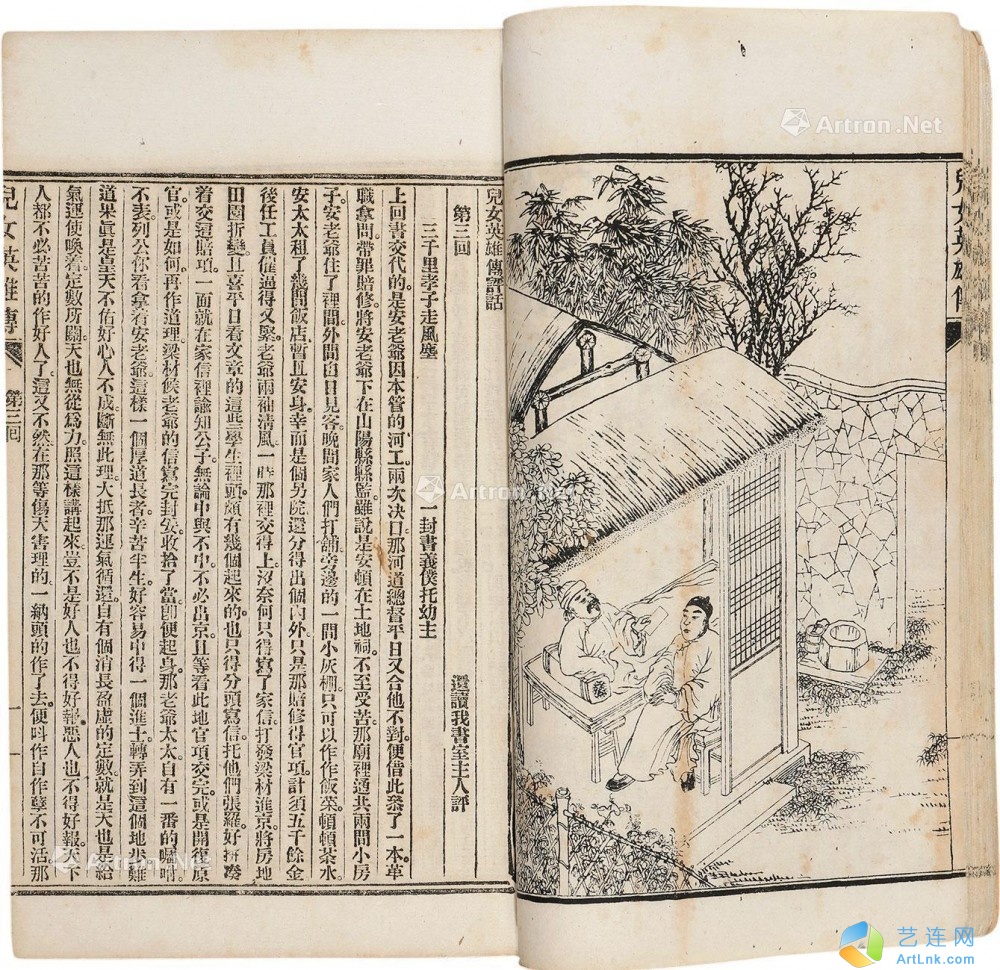 兒女英雄傳
兒女英雄傳評話
第三回
三千里孝子走風塵
一封書義僕托幼主
還讀我書室主人評
上回書交代的是安老爺因本管的河工兩次決口那河道總督平日又合他不對便借此參了一本革
職拿問帶罪賠修將安老爺下在山陽縣縣監雖說是安頓在土地祠不至受苦那廟裡通共兩間小房
子安老爺住了裡間外間白日見客晚間家人們打鋪旁邊的一間小灰棚只可以作作飯菜頓頓茶水
安太太租了幾間飯店暫且安身幸而是個另院還分得出個內外只是那賠修得官項計須五千餘金
後任工員催逼得又緊老爺兩袖清風一時那裡交得上沒奈何只得寫了家信打發梁材進京將房地
田園折變且喜平日看文章的這些學生裡頭頗有幾個起來的也只得分頭寫信托他們張羅好拼湊
着交這賠項一面就在家信裡諭知公子無論中與不中不必出京且等看此地官項交完或是開復原
官或是如何再作道理梁材候老爺的信寫完封妥收拾了當即便起身那老爺太太自有一番的囑咐
不表列公你看拿着安老爺這樣一個厚道長者辛苦半生好容易中得一個進士轉弄到這個地步難
道果真是皇天不佑好心人不成斷無此理大抵那運氣循還自有個消長盈虛的定數就是天也是給
氣運使喚着定數所關天也無從爲力照這樣講起來豈不是好人也不得好報惡人也不得好報天下
人都不必苦苦的作好人了這又不然在那等傷天害理的一納頭的作了去便呌作自作孽不可活那
兒女英雄傳
第三回
一
Artron.Net
艺连网
ArtLnk.com